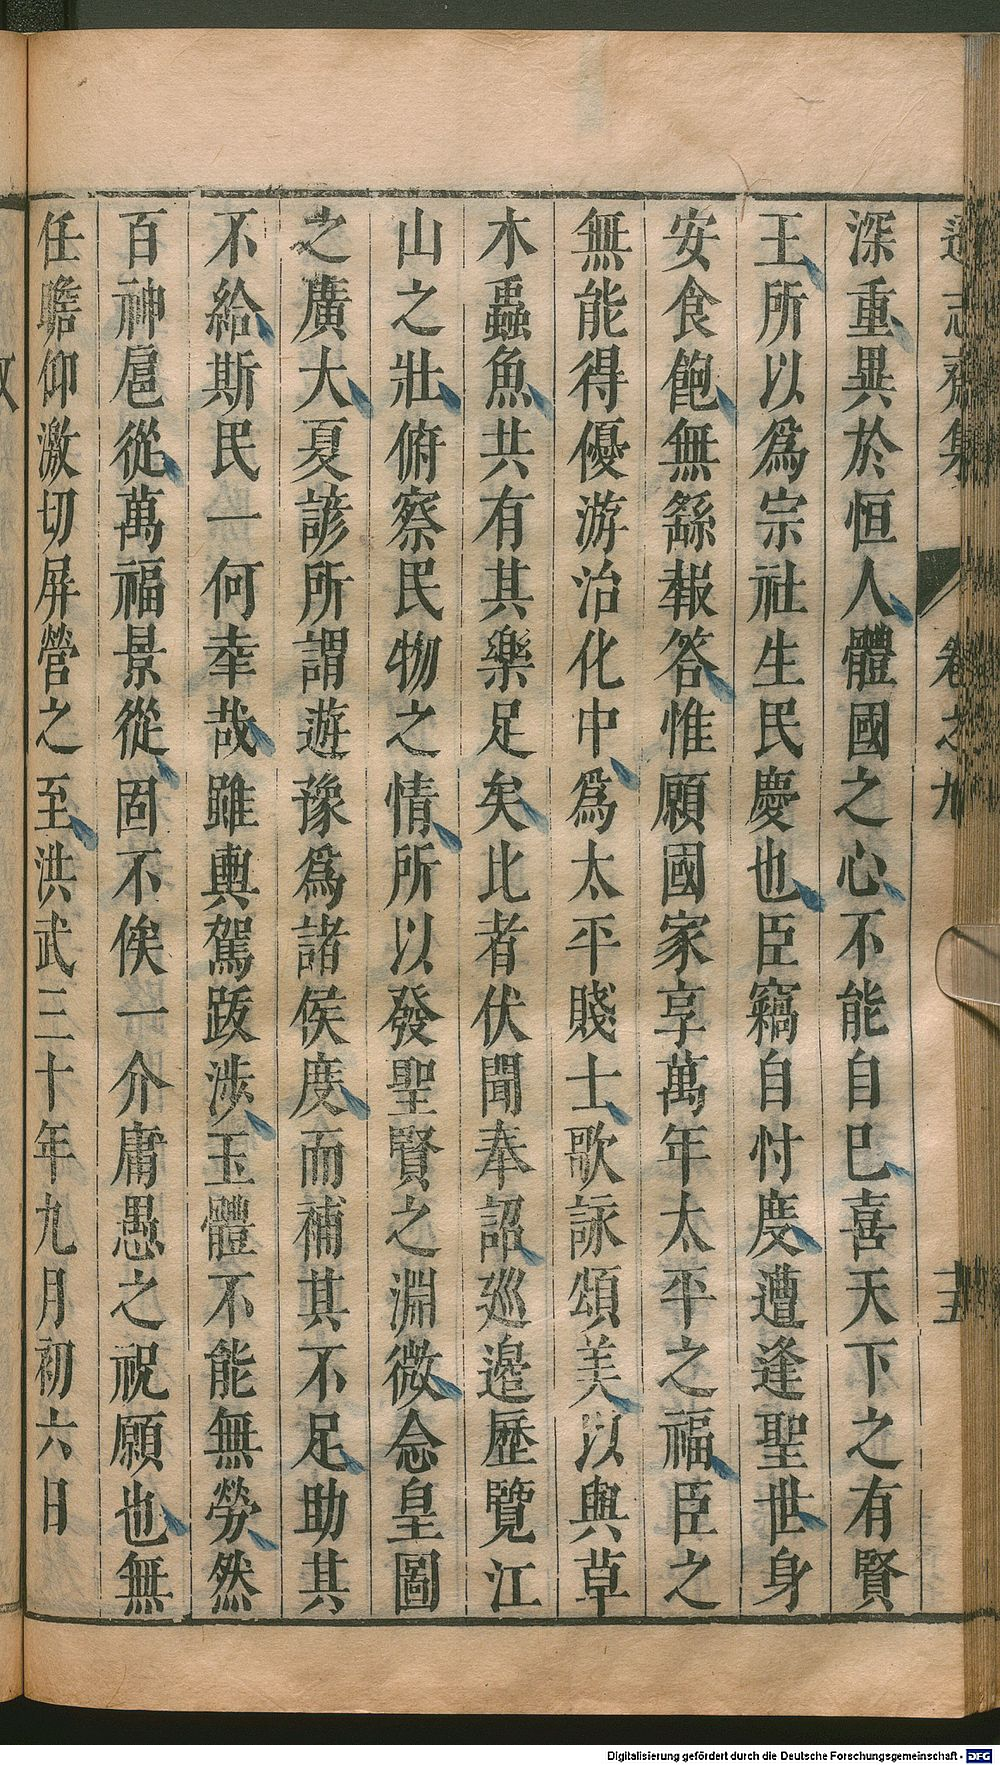 遜志齋集 卷之九 十五
深重異於恒人體國之心不能自巳喜天下之有賢
王所以爲宗社生民慶也臣竊自忖度遭逢聖世身
安食飽無繇報答惟願國家享萬年太平之福臣之
無能得優游治化中爲太平賤士歌詠頌美以與草
木蟲魚共有其樂足矣比者伏聞奉詔巡邉歷覽江
山之壯俯察民物之情所以發聖賢之淵微念皇圖
之廣大夏諺所謂遊豫爲諸侯度而補其不足助其
不給斯民一何幸哉雖輿駕跋涉玉體不能無勞然
百神扈從萬福景從固不俟一介庸愚之祝願也無
任瞻仰激切屏營之至洪武三十年九月初六日
Digitalisierung gefördert durch die Deutsche Forschungsgemeinschaft - DFG